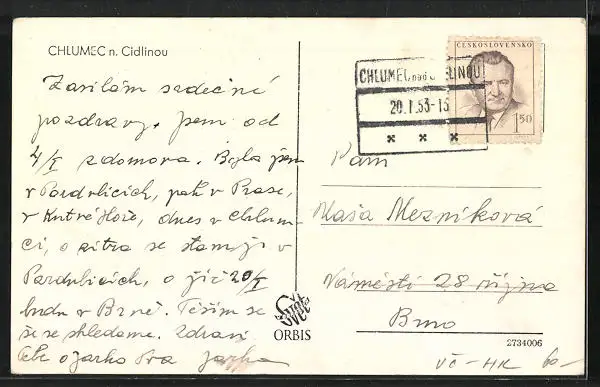 CHLUMEC n. Cidlinou
Zasílám srdečné
pozdravy. Jsem od
4/I z domova. Byla jsem
v Pardubicích, pak v Praze,
v Kutné Hoře, dnes v Chlum-
ci, a zítra se stavuji v
Pardubicích, a již 20/I
budu v Brně. Těším se
že se shledáme. Zdraví
Tebe a Jarko Tva Jarka
ČESKOSLOVENSKO
1.50
CHLUMEC nad CIDLINOU
20.I.53-15
Paní
Máša Mezníková
Náměstí 28 října
Brno
Svět
ORBIS
2734006
VČ-HK 60-